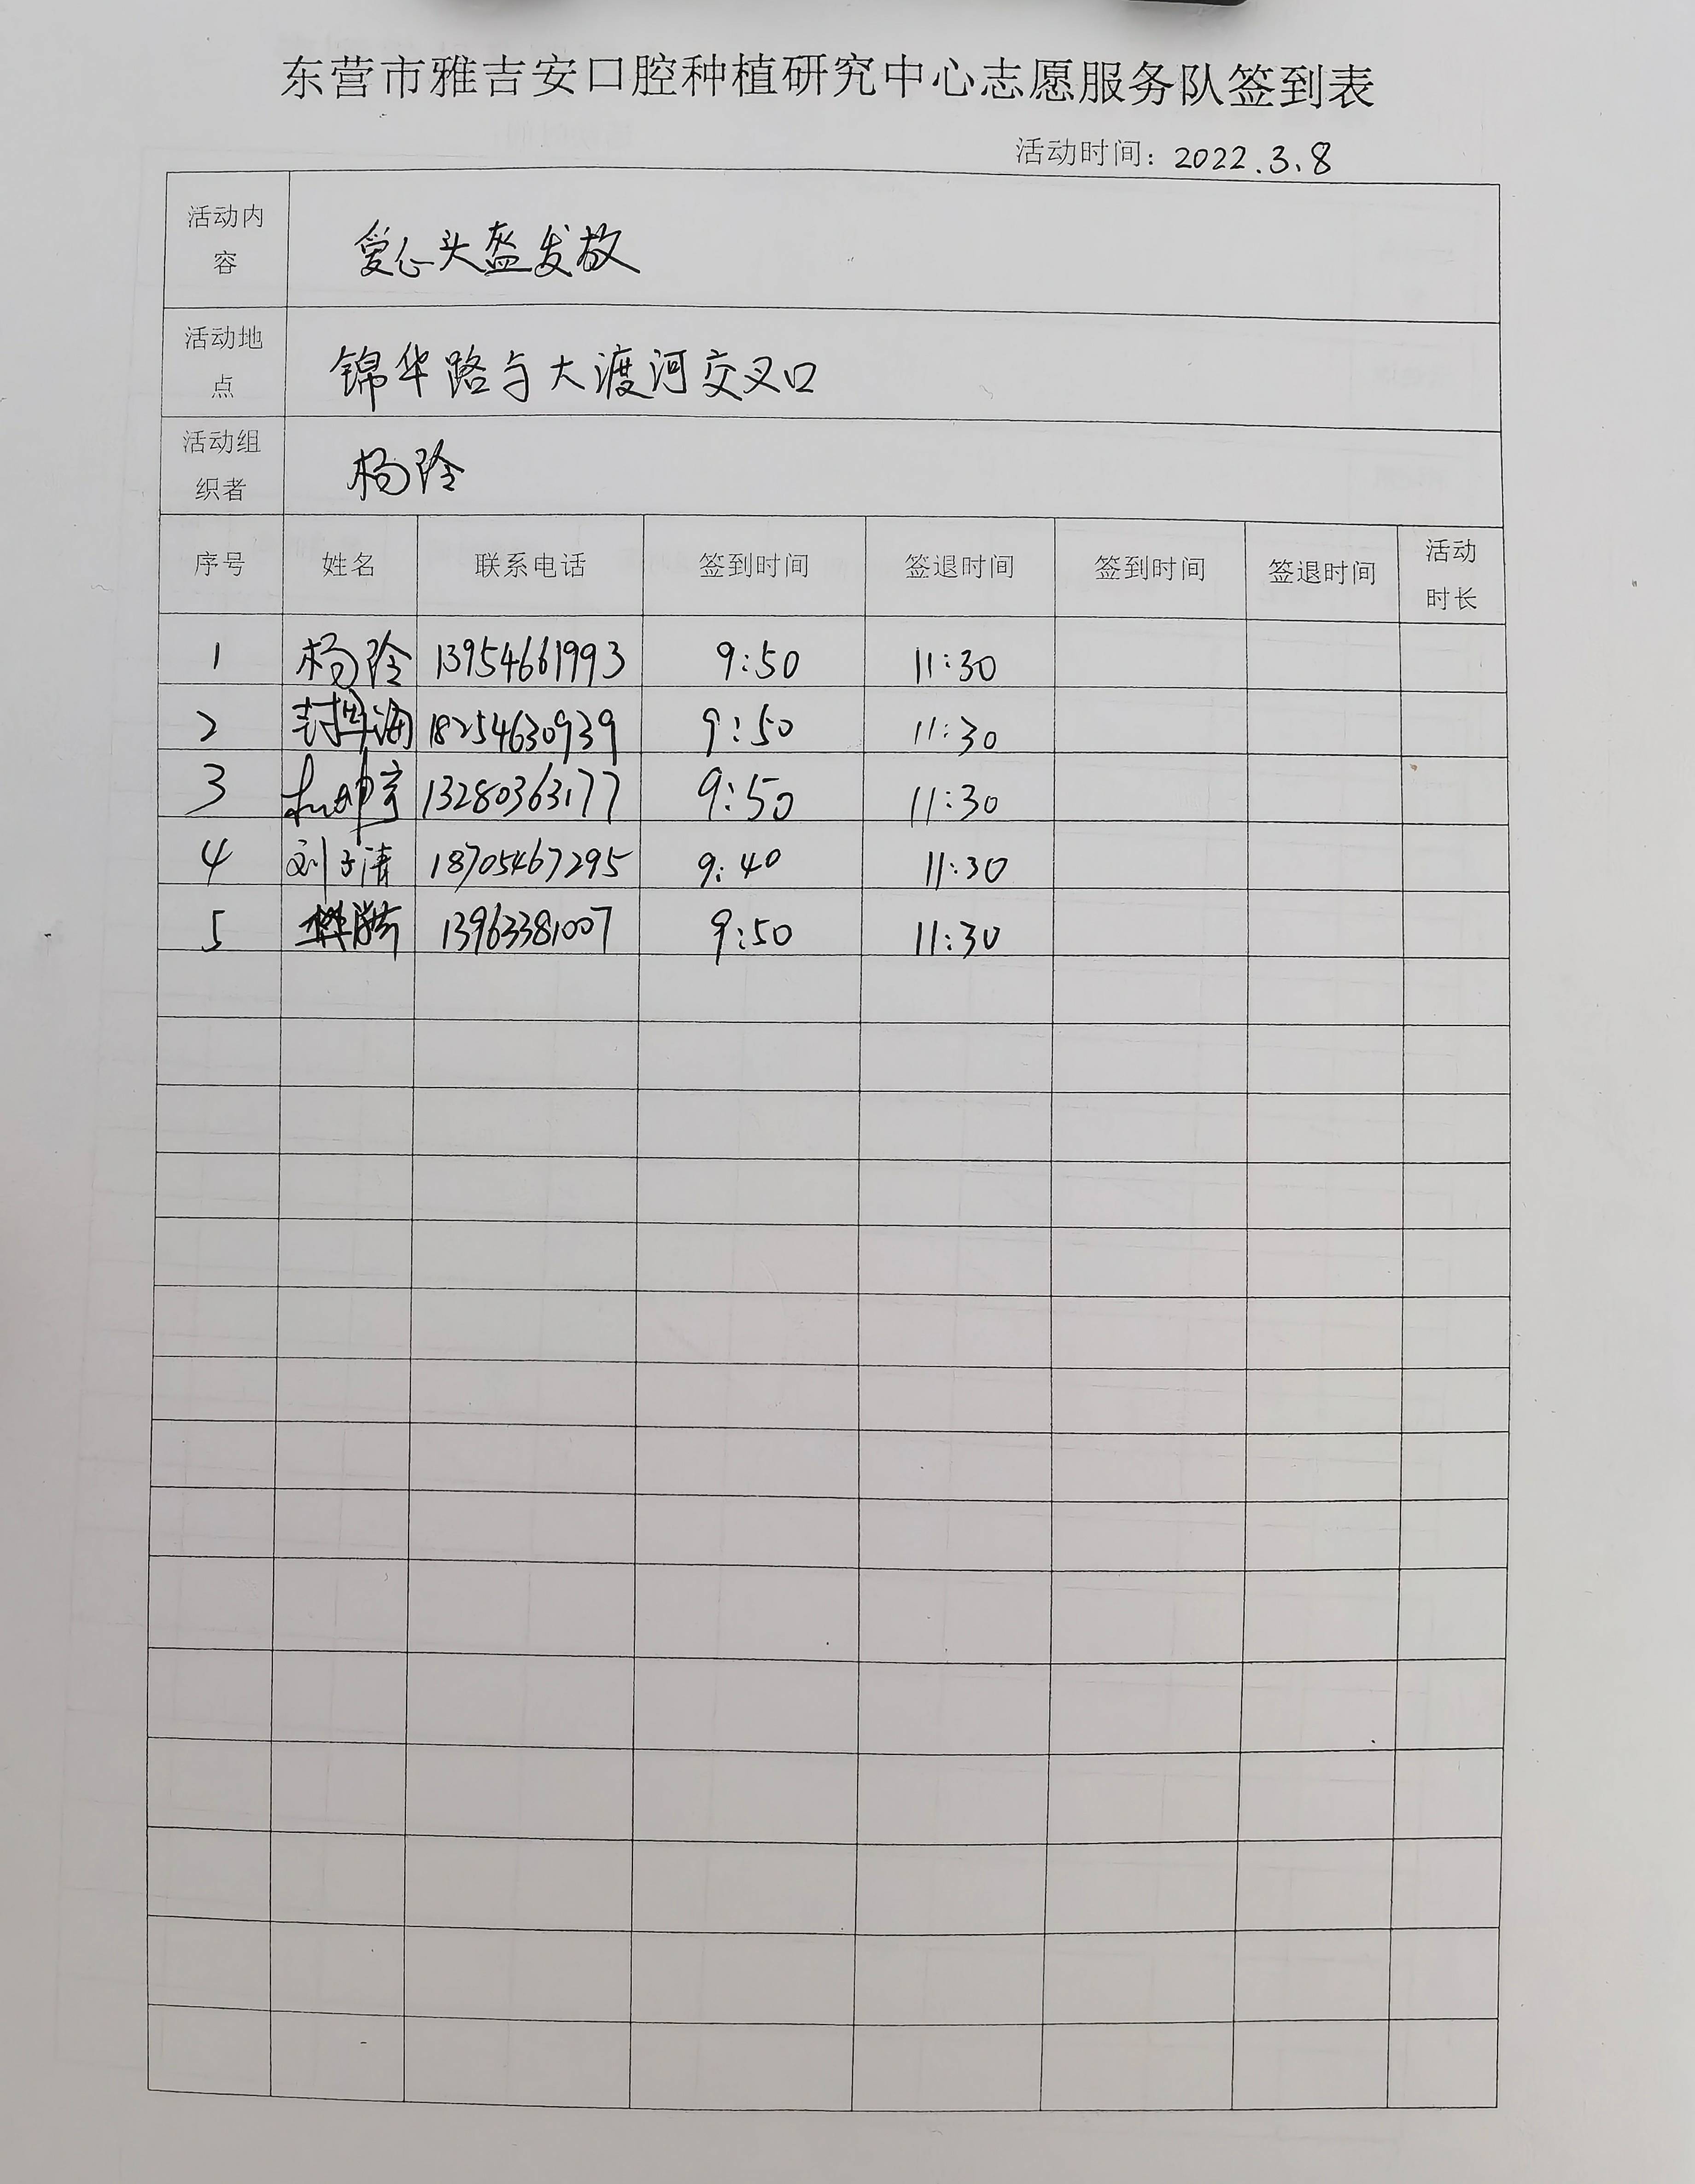 东营市雅吉安口腔种植研究中心志愿服务队签到表
活动时间：2022.3.8
活动内容 爱心头盔发放
活动地点 锦华路与大渡河交叉口
活动组织者 杨玲
序号 姓名 联系电话 签到时间 签退时间 签到时间 签退时间 活动时长
1 杨玲 13954661993 9:50 11:30
2 18254630939 9:50 11:30
3 13280363177 9:50 11:30
4 刘子清 18705467295 9:40 11:30
5 13963381007 9:50 11:30